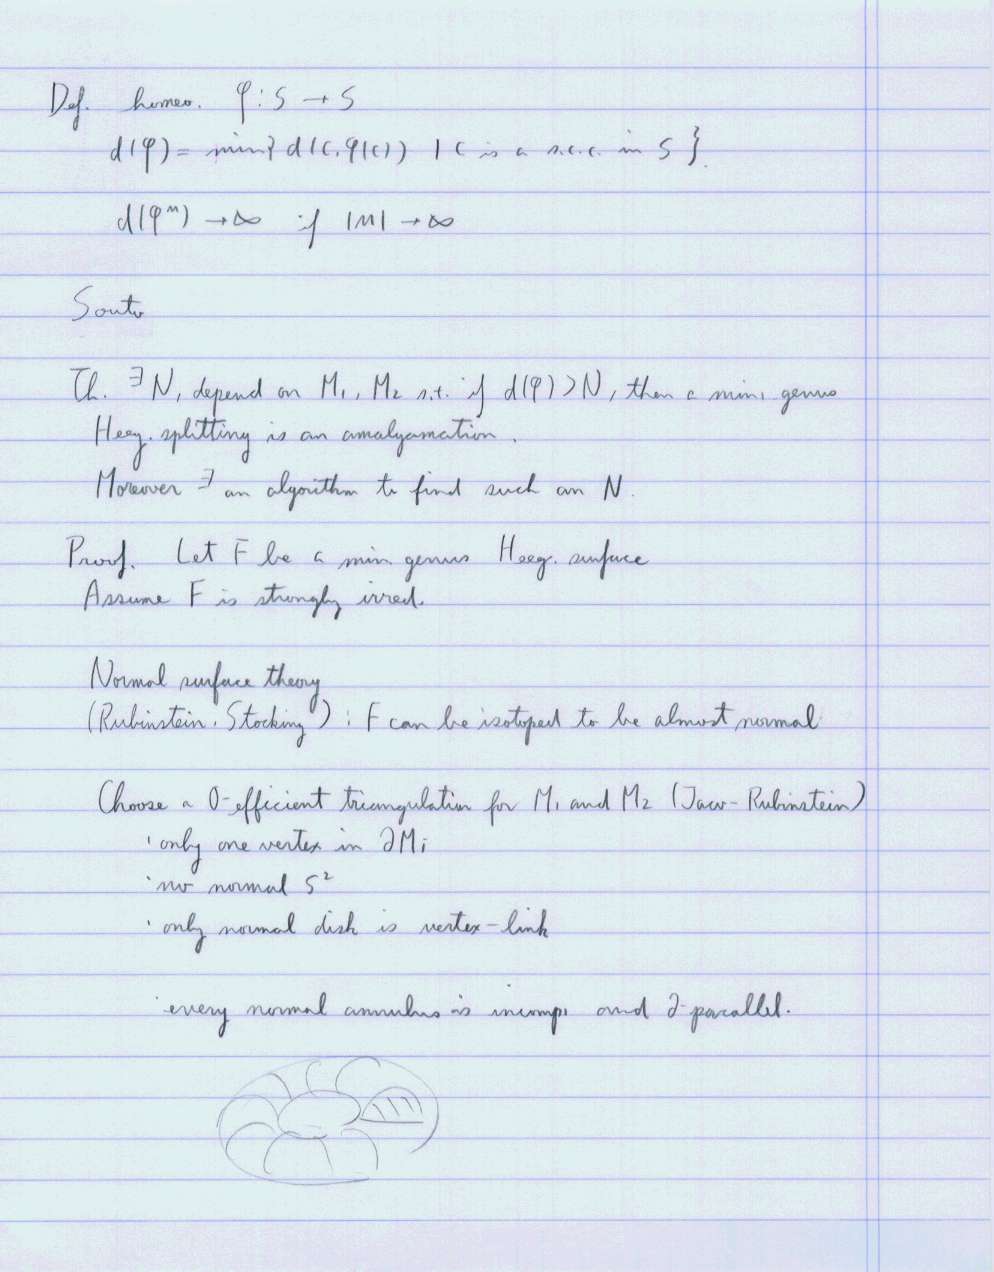 Def. homeo. φ : S → S
d(φ) = min{ d(C, φ(C)) | C is a s.c.c. in S }.
d(φⁿ) → ∞ if |n| → ∞
Souto
Th. ∃ N, depend on M₁, M₂ s.t. if d(φ) > N, then a min. genus
Heeg. splitting is an amalgamation.
Moreover ∃ an algorithm to find such an N.
Proof. Let F be a min genus Heeg. surface
Assume F is strongly irred.
Normal surface theory
(Rubinstein. Stocking) : F can be isotoped to be almost normal
Choose a 0-efficient triangulation for M₁ and M₂ (Jaco-Rubinstein)
· only one vertex in ∂Mi
· no normal S²
· only normal disk is vertex-link
· every normal annulus is incomp. and ∂-parallel.